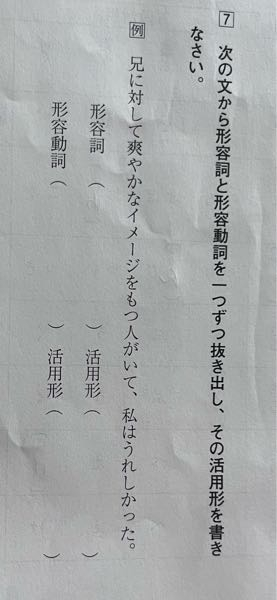 7 次の文から形容詞と形容動詞を一つずつ抜き出し、その活用形を書き
なさい。
例 兄に対して爽やかなイメージをもつ人がいて、私はうれしかった。
形容詞（　　　　　　）活用形（　　　　　　）
形容動詞（　　　　　　）活用形（　　　　　　）